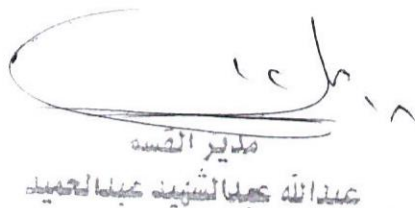 مدير القسم
عبدالله عبدالشهيد عبدالحميد